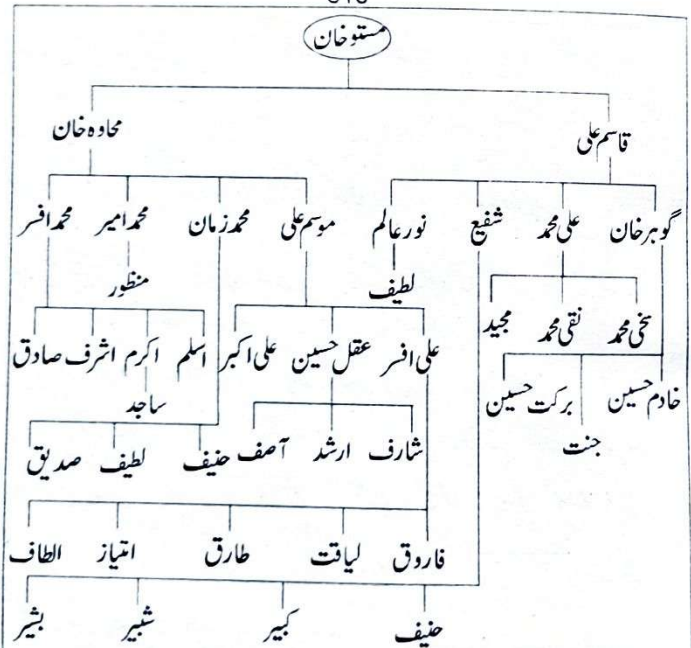 مستو خان
قاسم علی محاوہ خان
گوہر خان علی محمد شفیع نور عالم موسم علی محمد زمان محمد امیر محمد افسر
لطیف منظور
سخی محمد نقی محمد مجید
علی افسر عقل حسین علی اکبر اسلم اکرم اشرف صادق
خادم حسین برکت حسین ساجد
جنت
شارف ارشد آصف حنیف لطیف صدیق
فاروق لیاقت طارق امتیاز الطاف
حنیف کبیر شبیر بشیر